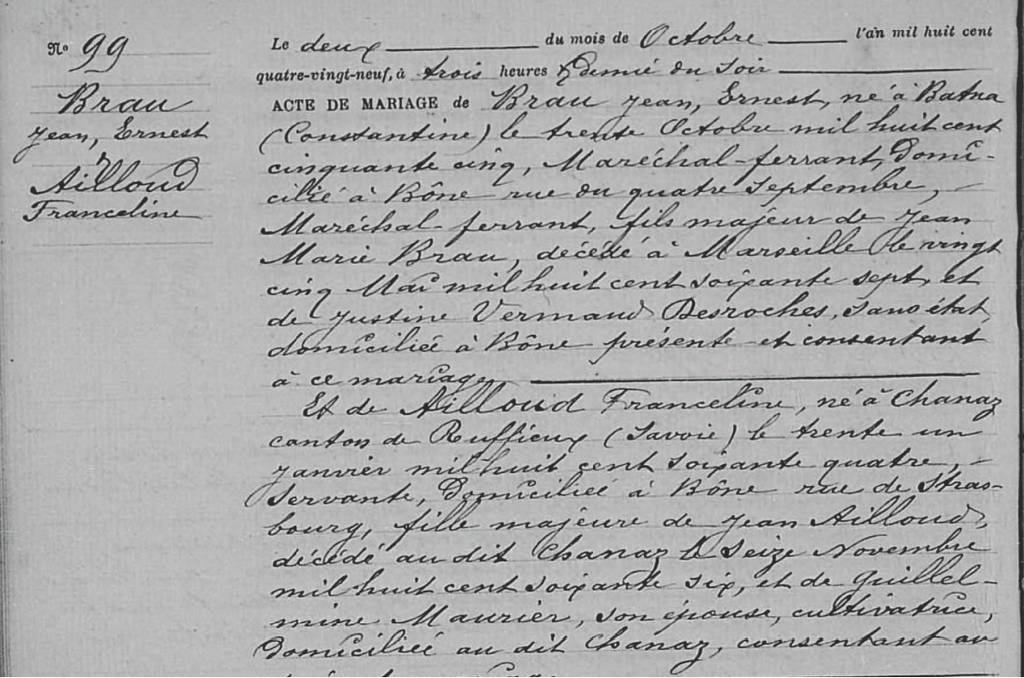 N° 99
Brau
Jean, Ernest
&
Ailloud
Franceline
Le deux du mois de Octobre l'an mil huit cent
quatre-vingt-neuf, à trois heures & demie du soir
ACTE DE MARIAGE de Brau Jean, Ernest, né à Batna
(Constantine) le trente Octobre mil huit cent
cinquante cinq, Maréchal-ferrant, Domi-
cilié à Bône rue du quatre Septembre,
Maréchal-ferrant, fils majeur de Jean
Marie Brau, décédé à Marseille le vingt
cinq Mai mil huit cent soixante sept, et
de Justine Vermand Desroches, sans état,
domiciliée à Bône présente et consentant
à ce mariage,
Et de Ailloud Franceline, né à Chanaz
canton de Ruffieux (Savoie) le trente un
Janvier mil huit cent soixante quatre,
Servante, Domiciliée à Bône rue de Stras-
bourg, fille majeure de Jean Ailloud,
décédé au dit Chanaz le Seize Novembre
mil huit cent soixante six, et de Guillel-
mine Maurier, son épouse, cultivatrice,
Domiciliée au dit Chanaz, consentant au